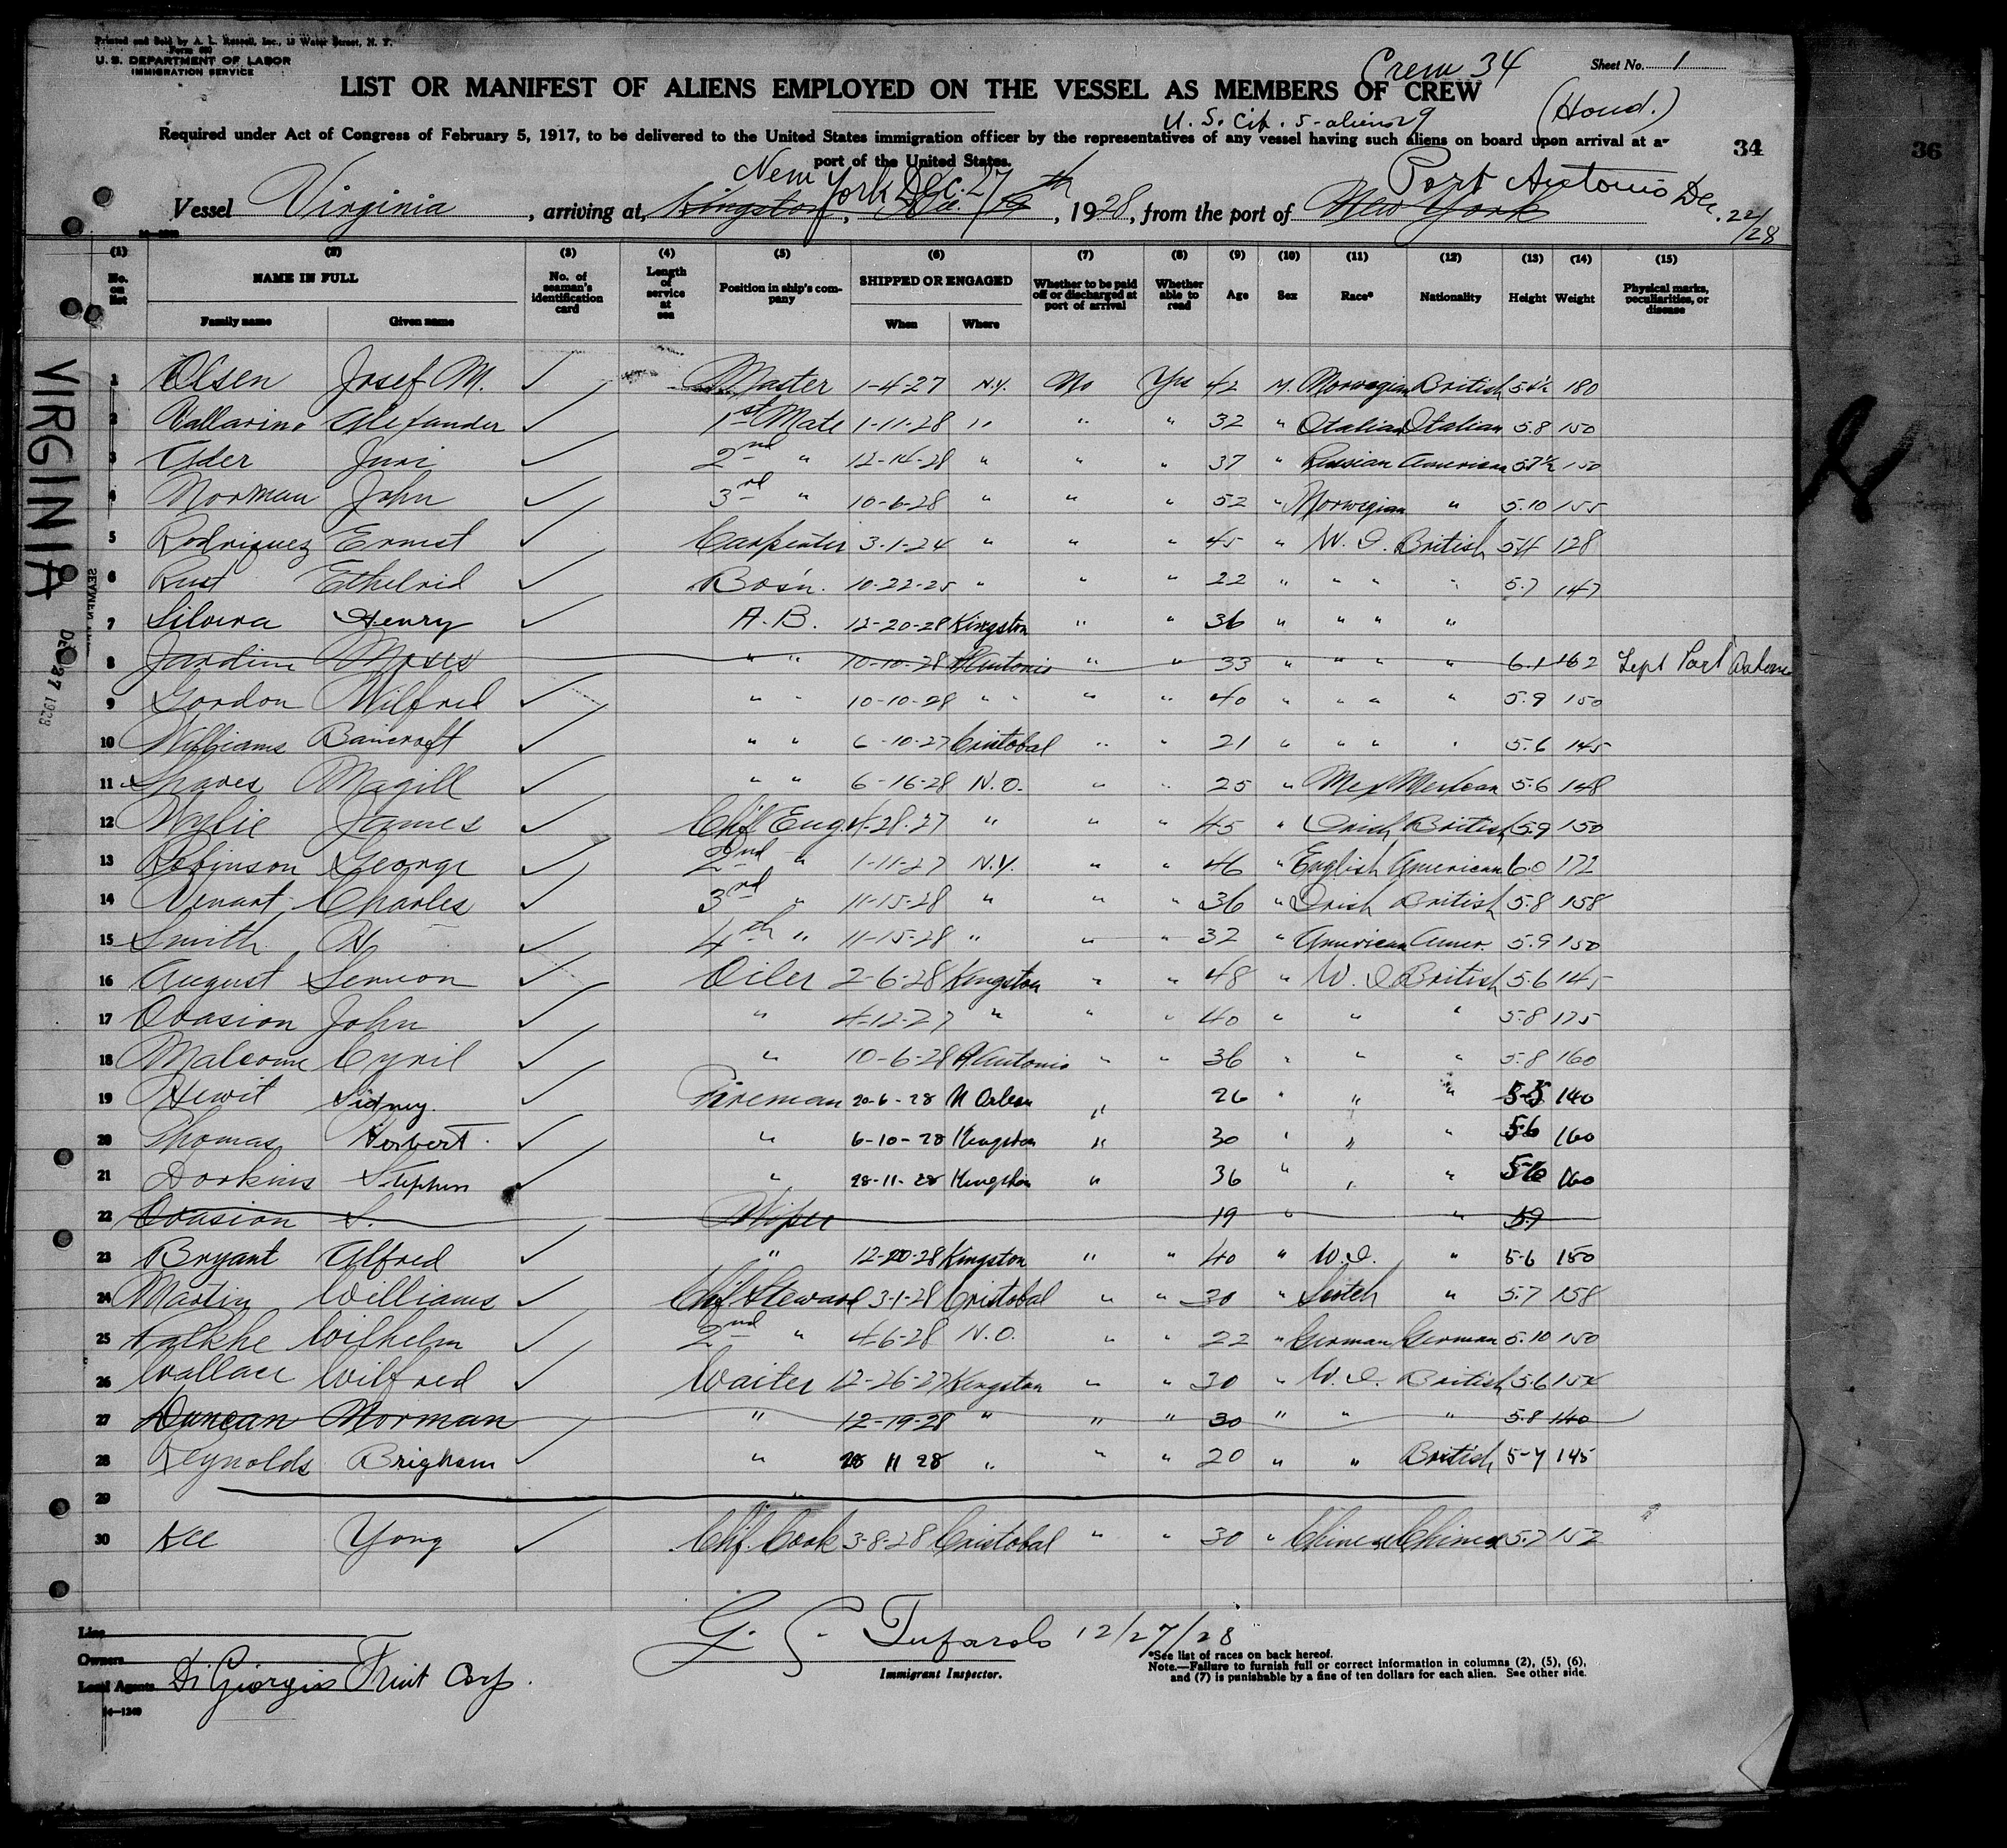 Printed and Sold by A. L. Russell, Inc., 19 Water Street, N. Y.
Form 680
U. S. DEPARTMENT OF LABOR
IMMIGRATION SERVICE
Crew 34
Sheet No. 1
LIST OR MANIFEST OF ALIENS EMPLOYED ON THE VESSEL AS MEMBERS OF CREW
(Hond.)
U. S. Cit. 5 - aliens 29
Required under Act of Congress of February 5, 1917, to be delivered to the United States immigration officer by the representatives of any vessel having such aliens on board upon arrival at a
port of the United States.
34
36
New York Dec. 27th
Port Antonio Dec. 22/28
Vessel Virginia, arriving at Kingston, Dec. 19, 1928, from the port of New York
(1) (2) (3) (4) (5) (6) (7) (8) (9) (10) (11) (12) (13) (14) (15)
No. on list NAME IN FULL No. of seaman's identification card Length of service at sea Position in ship's company SHIPPED OR ENGAGED Whether to be paid off or discharged at port of arrival Whether able to read Age Sex Race* Nationality Height Weight Physical marks, peculiarities, or disease
Family name Given name When Where
1 Olsen Josef M. ✓ Master 1-4-27 N.Y. No Yes 42 M. Norwegian British 5 4½ 180
2 Vallarino Alexander ✓ 1st Mate 1-11-28 " " " 32 " Italian Italian 5.8 150
3 Uder Juri ✓ 2nd " 12-14-28 " " " 37 " Russian American 5 7½ 150
4 Norman John ✓ 3rd " 10-6-28 " " " 52 " Norwegian " 5.10 155
5 Rodriquez Ernest ✓ Carpenter 3-1-24 " " " 45 " W. I. British 5 4 128
6 Rust Ethelrid ✓ Bos'n. 10-22-25 " " " 22 " " " " 5.7 147
7 Silvera Henry ✓ A. B. 12-20-28 Kingston " " 36 " " " "
8 Jardine Moses " " 10-10-28 P. Antonio " " 33 " " " " 6.1 162 Left Port Antonio
9 Gordon Wilfred ✓ " " 10-10-28 " " " " 40 " " " " 5.9 150
10 Williams Bancroft ✓ " " 6-10-27 Cristobal " " 21 " " " " 5.6 145
11 Magill ✓ " " 6-16-28 N.O. " " 25 " Mex Mexican 5.6 148
12 Wylie James ✓ Chf Eng. 4-28-27 " " " 45 " Irish British 5.9 150
13 Robinson George ✓ 2nd " 1-11-27 N.Y. " " 46 " English American 6.0 172
14 Venart Charles ✓ 3rd " 11-15-28 " " " 36 " Irish British 5.8 158
15 Smith H ✓ 4th " 11-15-28 " " " 32 " American Amer. 5.9 150
16 August Semion ✓ Oiler 2-6-28 Kingston " " 48 " W. I. British 5.6 145
17 Ovasion John ✓ " 4-12-27 " " " 40 " " " 5.8 175
18 Malcome Cyril ✓ " 10-6-28 P. Antonio " " 36 " " " 5.8 160
19 Hewit Sidney. ✓ Fireman 20-6-28 N Orlean " 26 " " " 5-5 140
20 Thomas Herbert. ✓ " 6-10-28 Kingston " 30 " " " 5-6 160
21 Dorkins Stephen ✓ " 28-11-28 Kingston " 36 " " " 5-6 160
22 Ovasion S. Wiper 19 " " 5.9
23 Bryant Alfred ✓ " 12-20-28 Kingston " " 40 " W. I. " 5-6 150
24 Martin Williams ✓ Chf Steward 3-1-28 Cristobal " " 30 " Scotch " 5.7 158
25 Falkhe Wilhelm ✓ 2nd " 4-6-28 N.O. " " 22 " German German 5.10 150
26 Wallace Wilfred ✓ Waiter 12-26-27 Kingston " " 30 " W. I. British 5.6 154
27 Duncan Norman " 12-19-28 " " " 30 " " " 5.8 140
28 Reynolds Brigham ✓ " 28 11 28 " " " 20 " " British 5-7 145
29
30 Kee Yong ✓ Chf. Cook 3-8-28 Cristobal " " 30 " Chinese Chinese 5.7 152
VIRGINIA
DEC 27 1928
Line
Owners
Local Agents Di Giorgio Fruit Corp.
14—1240
G. S. Tufarolo 12/27/28
Immigrant Inspector.
*See list of races on back hereof.
Note.—Failure to furnish full or correct information in columns (2), (5), (6),
and (7) is punishable by a fine of ten dollars for each alien. See other side.